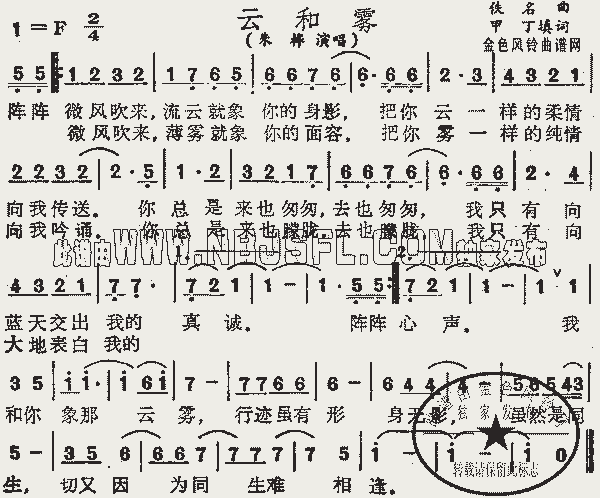 1=F 2/4
云和雾
(朱桦 演唱)
佚名曲
甲丁填词
金色风铃曲谱网
5 5 1 2 3 2 | 1 7 6 5 | 6 6 7 6 | 6· 6 6 | 2·3 | 4 3 2 1 |
阵阵 微风吹来,流云就象 你的身影, 把你 云一样的柔情
微风吹来,薄雾就象 你的面容, 把你 雾一样的纯情
2 2 3 2 | 2·5 | 1·2 | 3 2 1 7 | 6 6 7 6 | 6·6 6 | 2·4 |
向我传送。 你总是来也匆匆,去也匆匆, 我只有向
向我吟诵。 你总是来也朦胧,去也朦胧, 我只有向
WWW.NBJSFL.COM 独家发布
4 3 2 1 | 7 7· | 7 2 1 | 1 - | 1·5 5 :| 7 2 1 | 1 - | 1 1 |
蓝天交出我的 真诚。 阵阵心声。 我
大地表白我的
3 5 | i i· | i 6 i | 7 - | 7 7 6 6 | 6 - | 6 4 4 | 4 - | 5 6 5 4 3 |
和你 象那 云雾, 行迹虽有形 身无影, 虽然是同
转载请保留此标志
5 - | 3 5 6 | 6 6 7 | 7 7 7 6 | 7 5 | i - | i - | i - | i 0
生,切又因 为同生难 相逢。